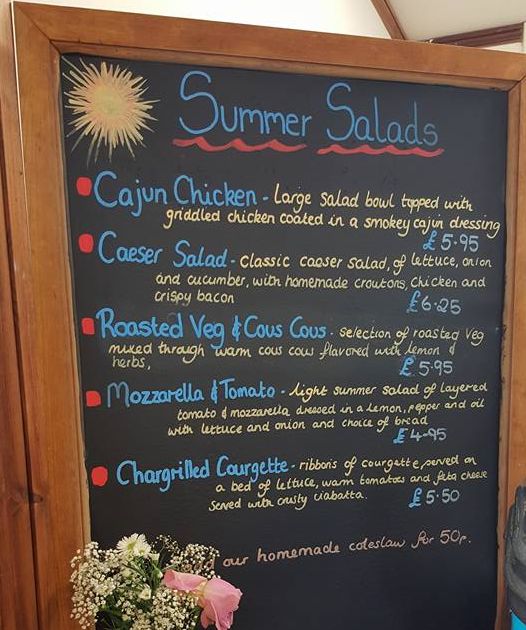 Summer Salads
Cajun Chicken - Large salad bowl topped with
griddled chicken coated in a smokey cajun dressing
£5.95
Caeser Salad - classic caeser salad, of lettuce, onion
and cucumber, with homemade croutons, chicken and
crispy bacon
£6.25
Roasted Veg & Cous Cous - selection of roasted veg
mixed through warm cous cous flavored with lemon &
herbs,
£5.95
Mozzarella & Tomato - light summer salad of layered
tomato & mozzarella dressed in a lemon, pepper and oil
with lettuce and onion and choice of bread
£4-95
Chargrilled Courgette - ribbons of courgette, served on
a bed of lettuce, warm tomatoes and feta cheese
served with crusty ciabatta.
£5.50
our homemade coleslaw for 50p.